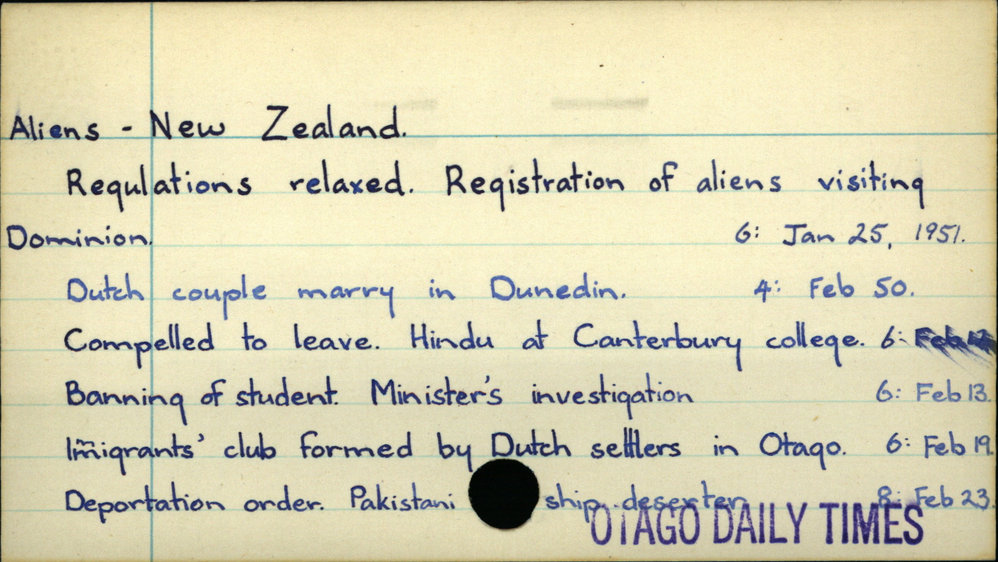 Aliens - New Zealand.
Regulations relaxed. Registration of aliens visiting
Dominion. 6: Jan 25, 1951.
Dutch couple marry in Dunedin. 4: Feb 50.
Compelled to leave. Hindu at Canterbury college. 6: Feb
Banning of student. Minister's investigation 6: Feb 13.
Imigrants' club formed by Dutch settlers in Otago. 6: Feb 19.
Deportation order. Pakistani ship deserter. 8: Feb 23.
OTAGO DAILY TIMES